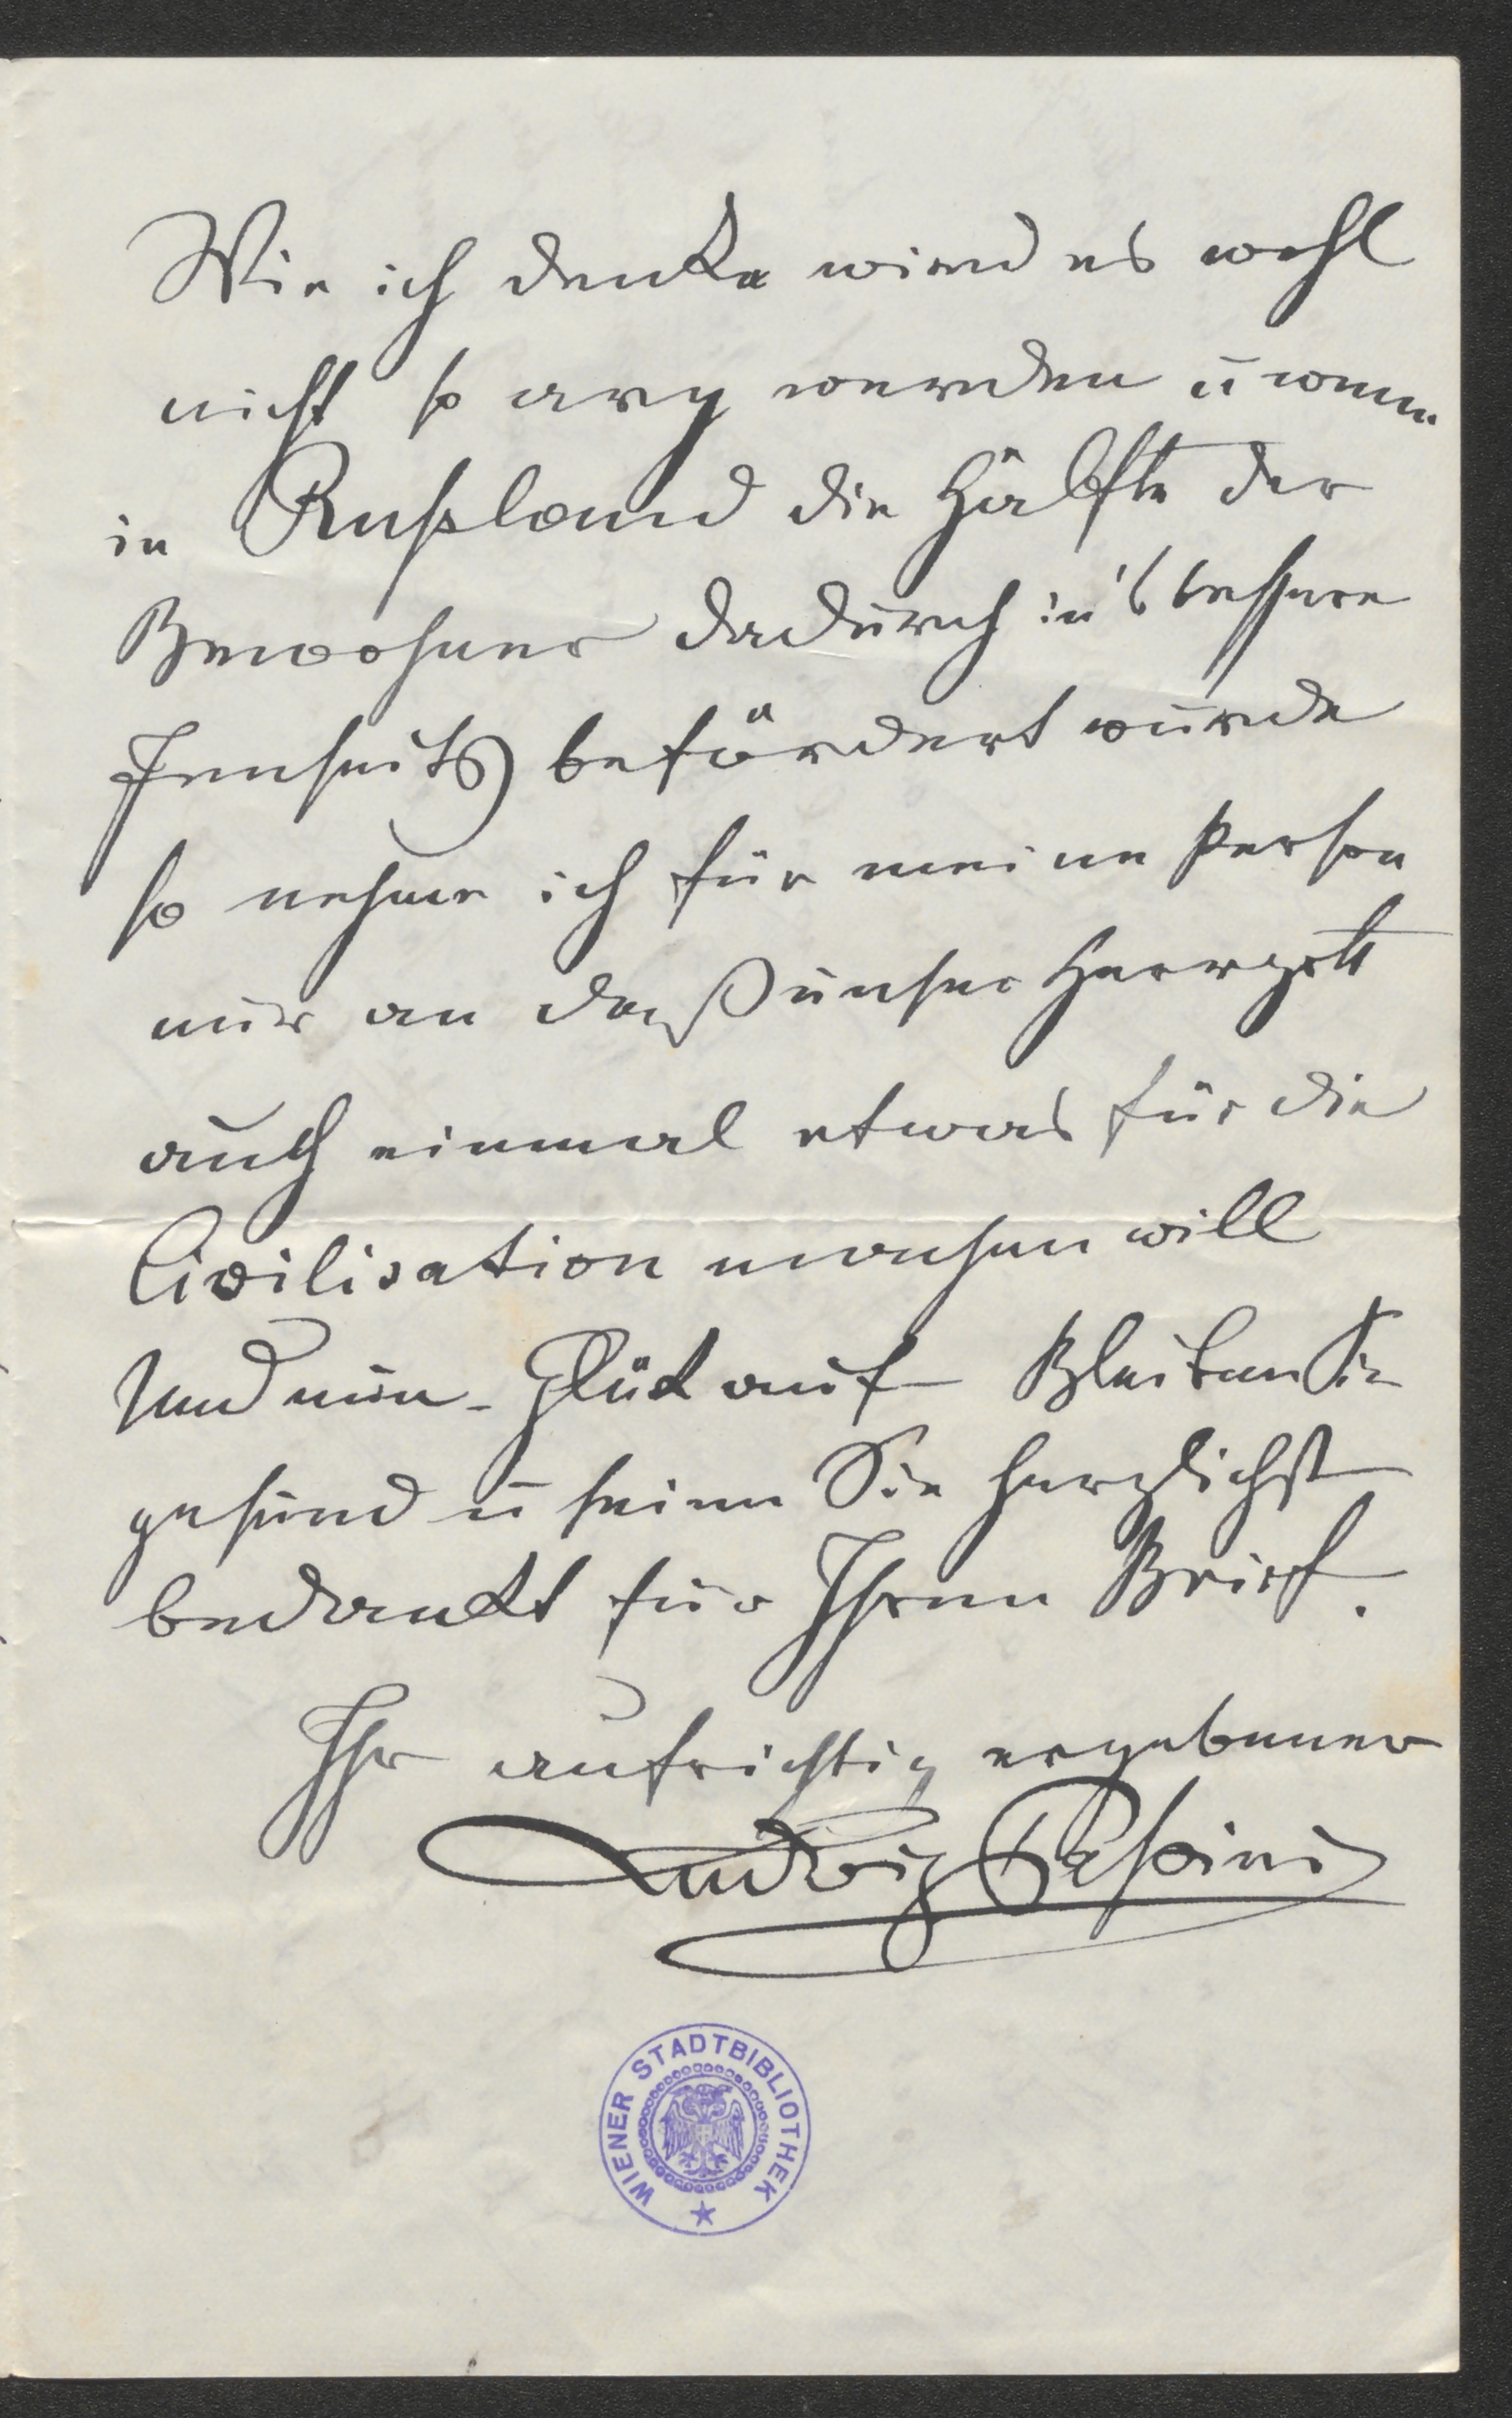 Wie ich denke wird es wohl
nicht so arg werden u wenn
in Rußland die Hälfte der
Bewohner dadurch in's bessere
Jenseits befördert würde
so nehme ich für meine Person
nur an daß unser Herrgott
auch einmal etwas für die
Civilisation machen will
Und nun - Glück auf Bleiben Sie
gesund u seien Sie herzlichst
bedankt für Ihren Brief.
Ihr aufrichtig ergebener
Ludwig Passini
WIENER STADTBIBLIOTHEK